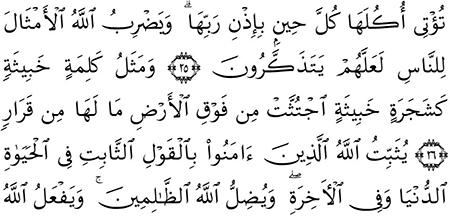 تُؤْتِىٓ أُكُلَهَا كُلَّ حِينٍۭ بِإِذْنِ رَبِّهَا ۗ وَيَضْرِبُ ٱللَّهُ ٱلْأَمْثَالَ
لِلنَّاسِ لَعَلَّهُمْ يَتَذَكَّرُونَ ٢٥ وَمَثَلُ كَلِمَةٍ خَبِيثَةٍ
كَشَجَرَةٍ خَبِيثَةٍ ٱجْتُثَّتْ مِن فَوْقِ ٱلْأَرْضِ مَا لَهَا مِن قَرَارٍ
٢٦ يُثَبِّتُ ٱللَّهُ ٱلَّذِينَ ءَامَنُوا۟ بِٱلْقَوْلِ ٱلثَّابِتِ فِى ٱلْحَيَوٰةِ
ٱلدُّنْيَا وَفِى ٱلْأَخِرَةِ ۖ وَيُضِلُّ ٱللَّهُ ٱلظَّـٰلِمِينَ ۚ وَيَفْعَلُ ٱللَّهُ